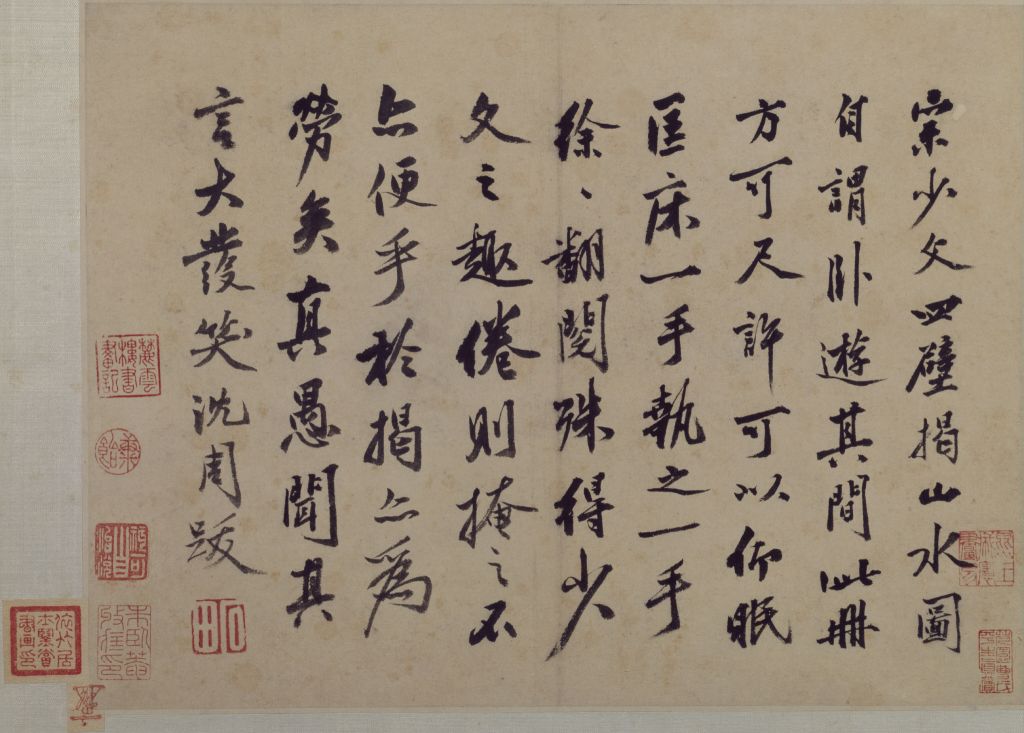 宗少文四壁揭山水圖
自謂卧遊其間此冊
方可尺許可以仰眠
匡床一手執之一手
徐、翻閱殊得少
文之趣倦則掩之不
亦便乎於揭亦爲
勞矣真愚聞其
言大發笑沈周跋